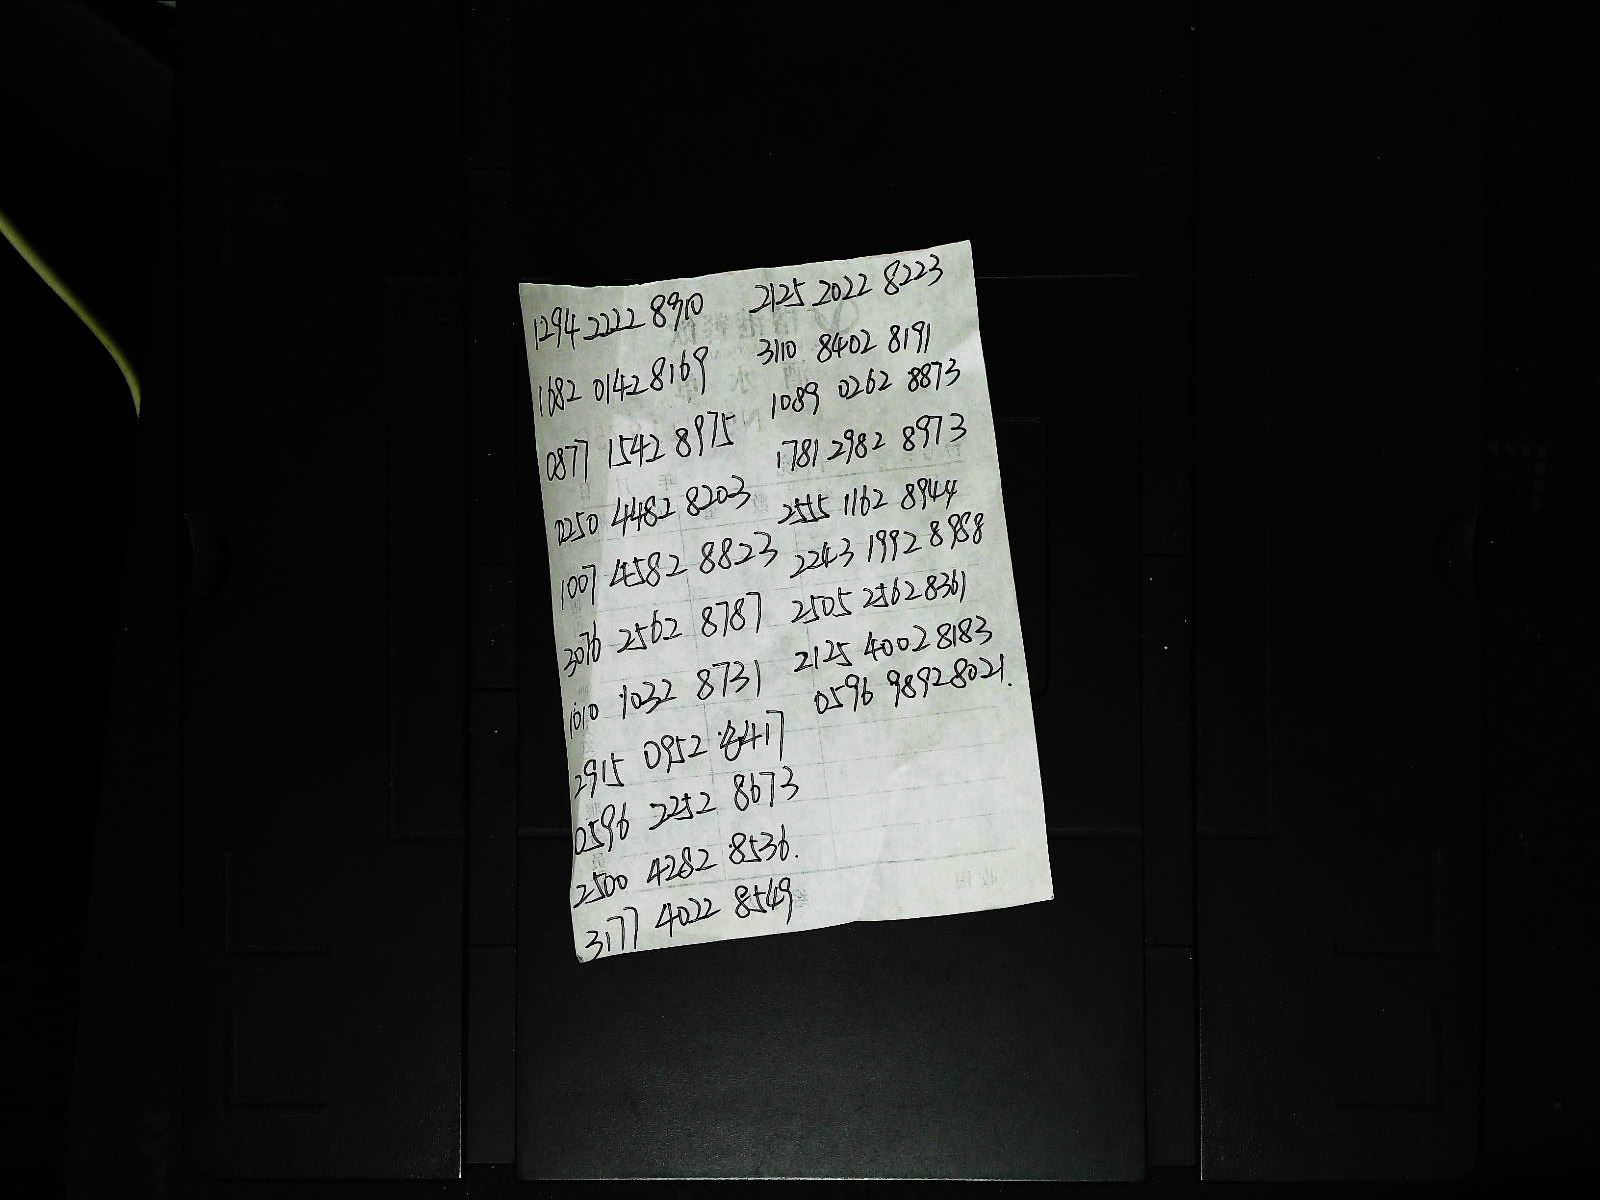 1294 2222 8910
1682 0142 8169
0877 1542 8975
0250 4482 8203
1007 4582 8823
3076 2562 8787
1010 1032 8731
2915 0952 8417
0596 2252 8673
2500 4282 8536.
3177 4022 8549
2125 2022 8223
3110 8402 8191
1089 0262 8873
1781 2982 8973
2555 1162 8944
2243 1992 8988
2505 2562 8361
2125 4002 8183
0596 9892 8021.